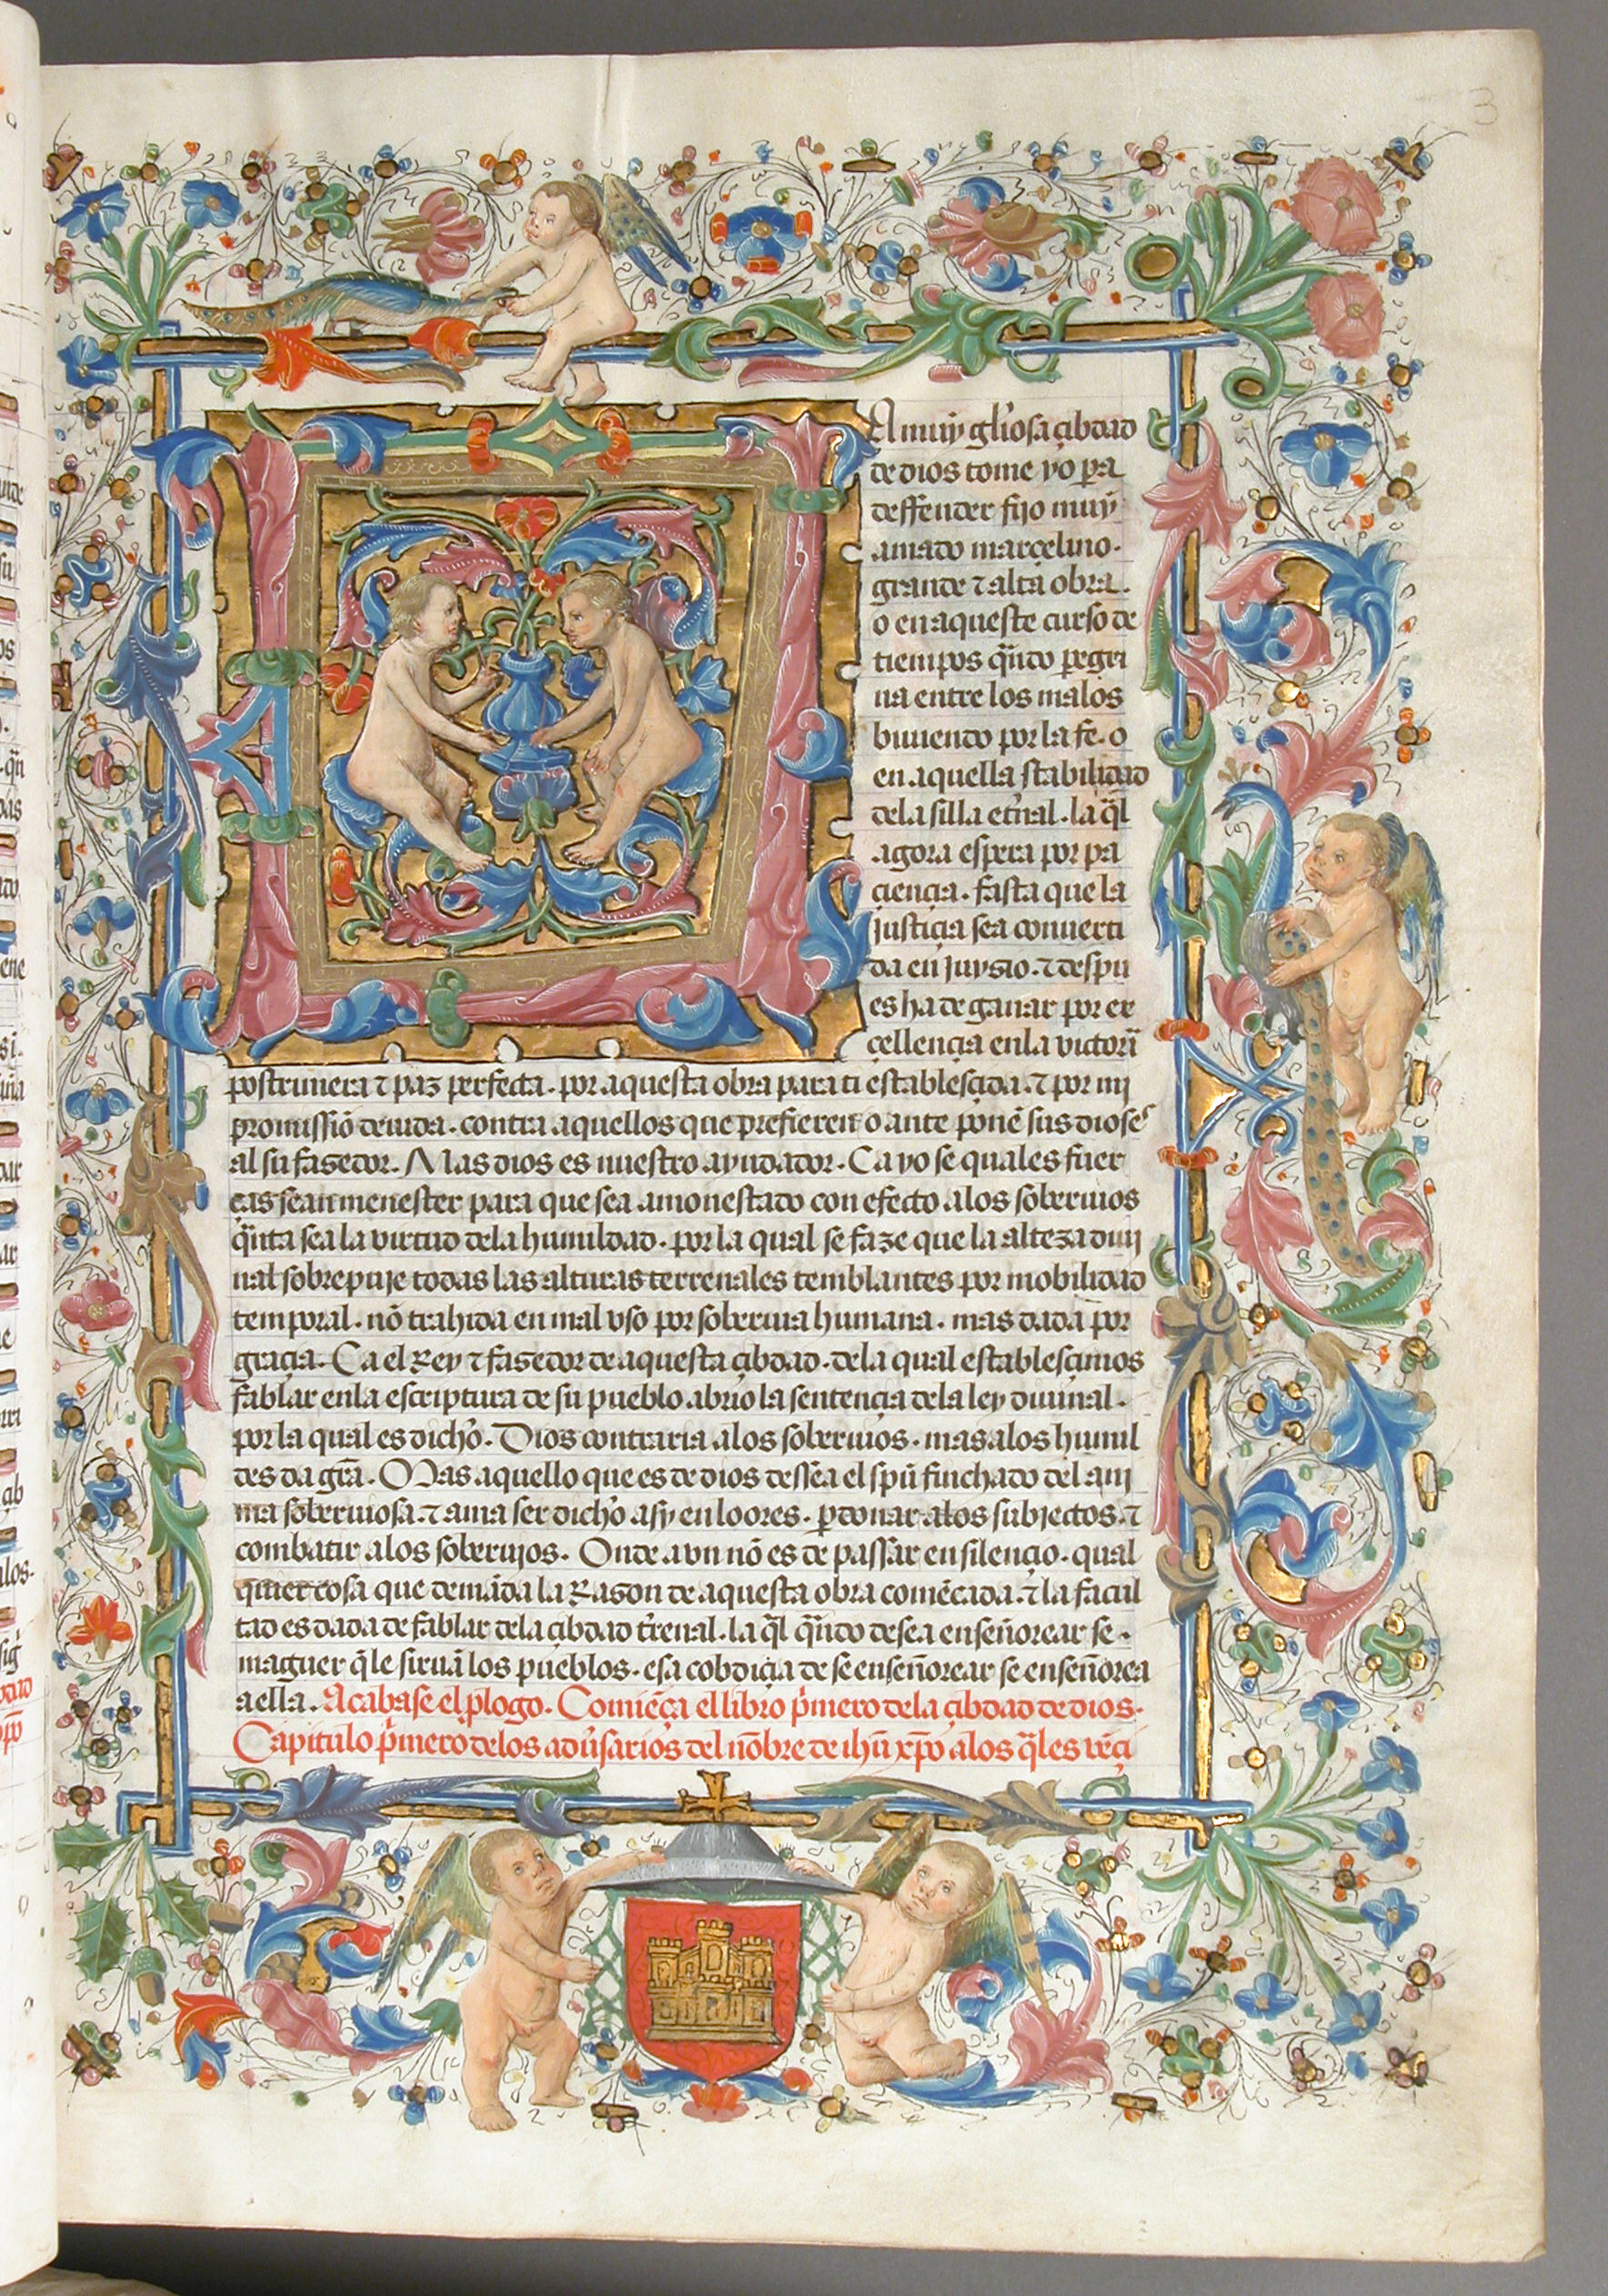 3
A muy gl'iosa çibdad
de dios tome yo pa
deffender fijo muy
amado marçelino.
grande ⁊ alta obra.
o en aqueste curso de
tiempos q̃ndo pegri
na entre los malos
biuiendo por la fe. o
en aquella stabilidad
dela silla et'nal. la q̃l
agora espera por pa
çiençia. fasta que la
justiçia sea conuerti
da en juysio. ⁊ despu
es ha de ganar por ex
cellençia enla victori̅a
postrimera ⁊ paz perfecta. por aquesta obra para ti establesçida. ⁊ por mj
promissio̅ deuida. contra aquellos que prefieren o ante pone̅ sus dioses
al su fasedor. Mas dios es nuestro ayudador. Ca yo se quales fuer
ças sean menester para que sea amonestado con efecto alos soberuios
q̃nta sea la virtud dela humildad. por la qual se faze que la alteza diuj
nal sobrepuje todas las alturas terrenales temblantes por mobilidad
temporal. no̅ trahida en mal vso por soberuia humana. mas dada por
graçia. Ca el Rey ⁊ fasedor de aquesta çibdad. de la qual establesçimos
fablar enla escriptura de su pueblo abrio la sentençia dela ley diuinal.
por la qual es dicho. Dios contraria alos soberuios. mas alos humil
des da gr̅a. Mas aquello que es de dios dessea el spu̅ finchado del anj
ma soberuiosa. ⁊ ama ser dicho asy en loores. p̱donar alos subjectos. ⁊
combatir alos soberujos. Onde avn no̅ es de passar en silençio. qual
quier cosa que dema̅da la Rason de aquesta obra come̅cada. ⁊ la facul
tad es dada de fablar dela çibdad t'renal. la q̃l q̃ndo desea enseñorear se.
maguer q̃ le sirua̅ los pueblos. esa cobdiçia de se enseñorear se enseñorea
a ella. Acabase el plogo. Comie̅ça el libro p'mero dela çibdad de dios.
Capitulo p'mero delos adu'sarios del no̅bre de ihu̅ xp̅o alos q̃les ve̅çi